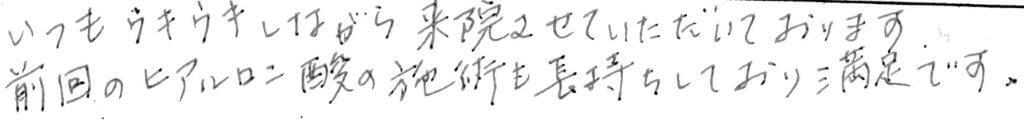 いつもウキウキしながら来院させていただいております
前回のヒアルロン酸の施術も長持ちしており満足です。